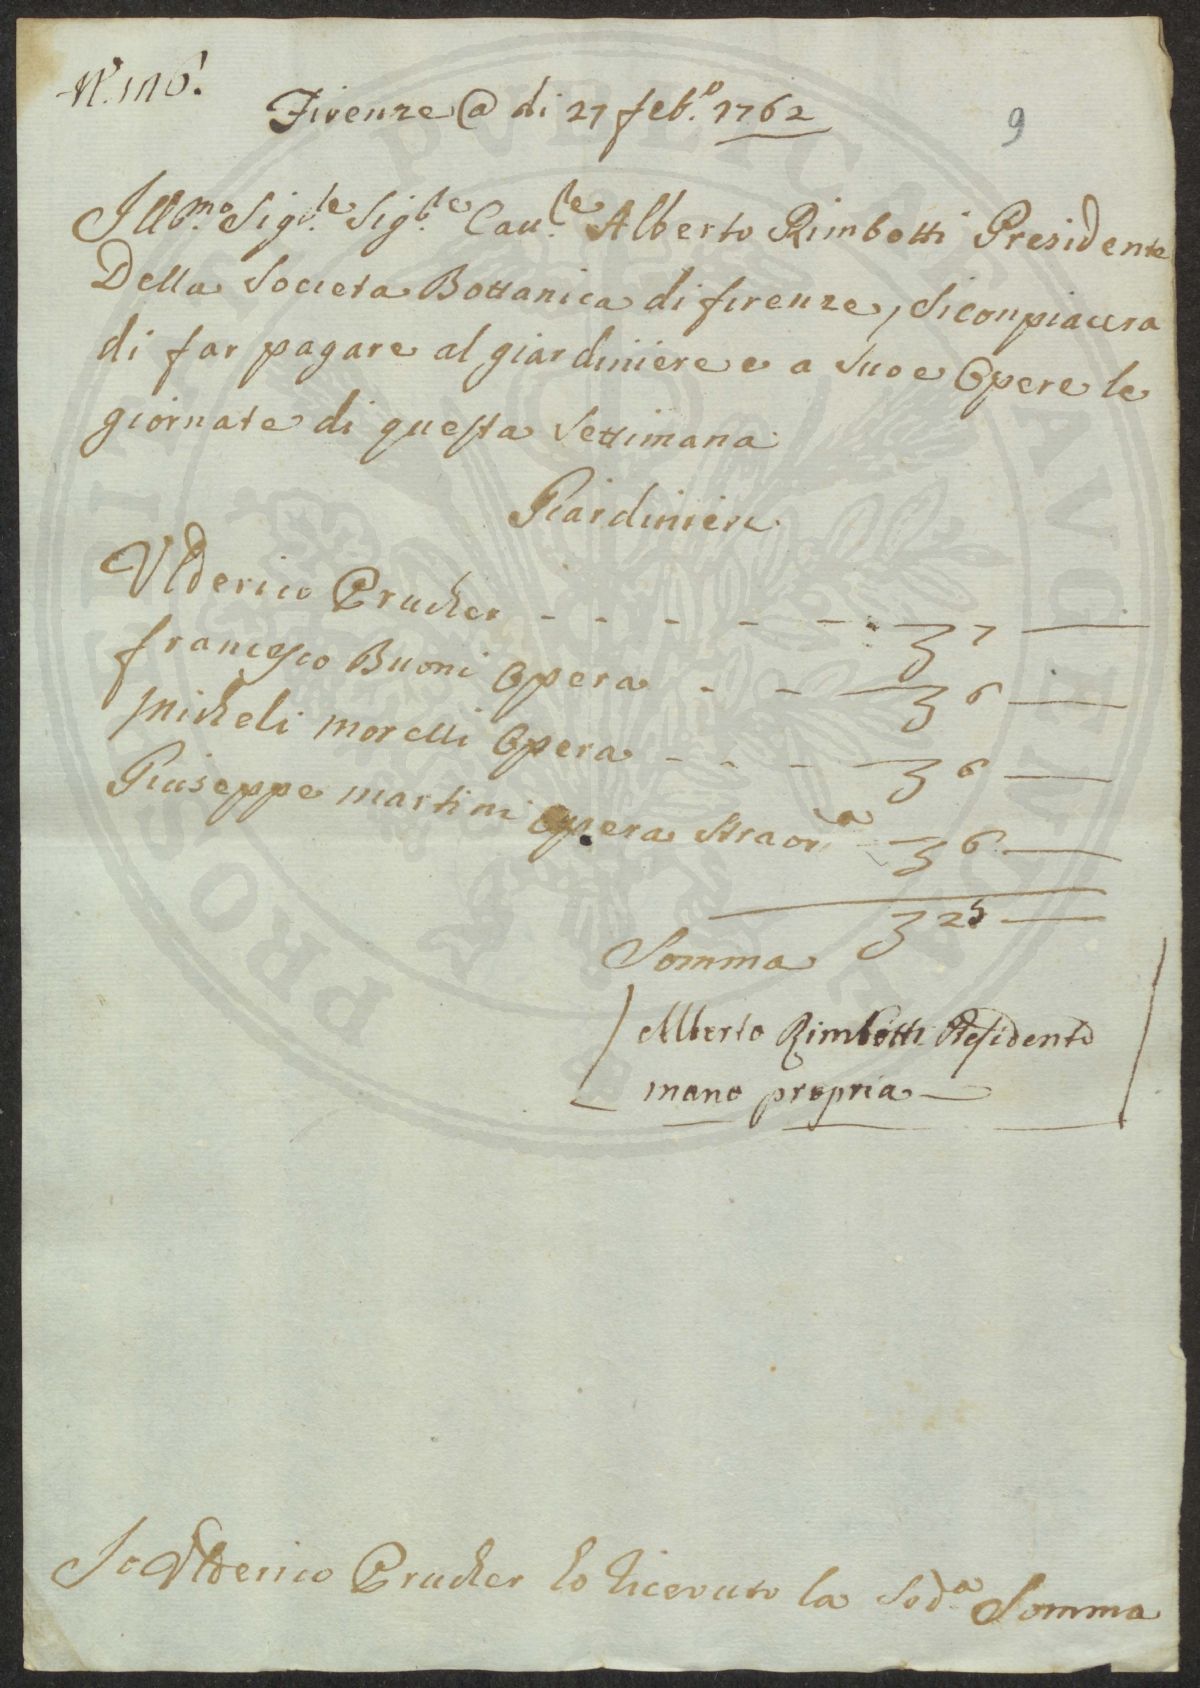 N.º 116.
Firenze @ di 27 feb.º 1762
9
Ill.mo Sig.re Sig.re Cau.re Alberto Rimbotti Presidente
Della Societa Bottanica di firenze, si conpiacera
di far pagare al giardiniere e a suoe Opere le
giornate di questa Settimana
Giardiniere
Vlderico Prucker - - - - - - 7
francesco Buoni Opera - - - 6
Micheli morelli Opera - - - - 6
Giuseppe martini opera straor.a - 6
25
Somma
Alberto Rimbotti Presidente
mano propria
Io Vlderico Prucker ho riceuuto la Sod.a Somma
PROSPERITATI PVBLICAE AVGENDAE